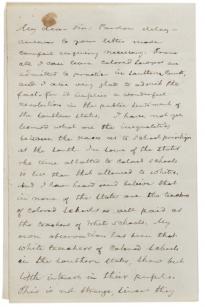 My dear Sir: Pardon delay -
answer to your letter made
inquiry necessary. From
all I can learn colored lawyers are
admitted to practice in Southern Courts,
and I am very glad to admit the
fact - for it implies a wonderful
revolution in the public sentiment of
the Southern States. I have not yet
learned what are the inequalities
between the races as to school privileges
at the South. In some of the states
the time allotted to colored schools
is less than that allowed to whites.
And I have heard and believe that
in none of the States are the teachers
of Colored Schools as well paid as
the teachers of White Schools. My
own observation has been that
White teachers of Colored Schools
in the Southern States, show but
little interest in their pupils.
This is not strange, since they